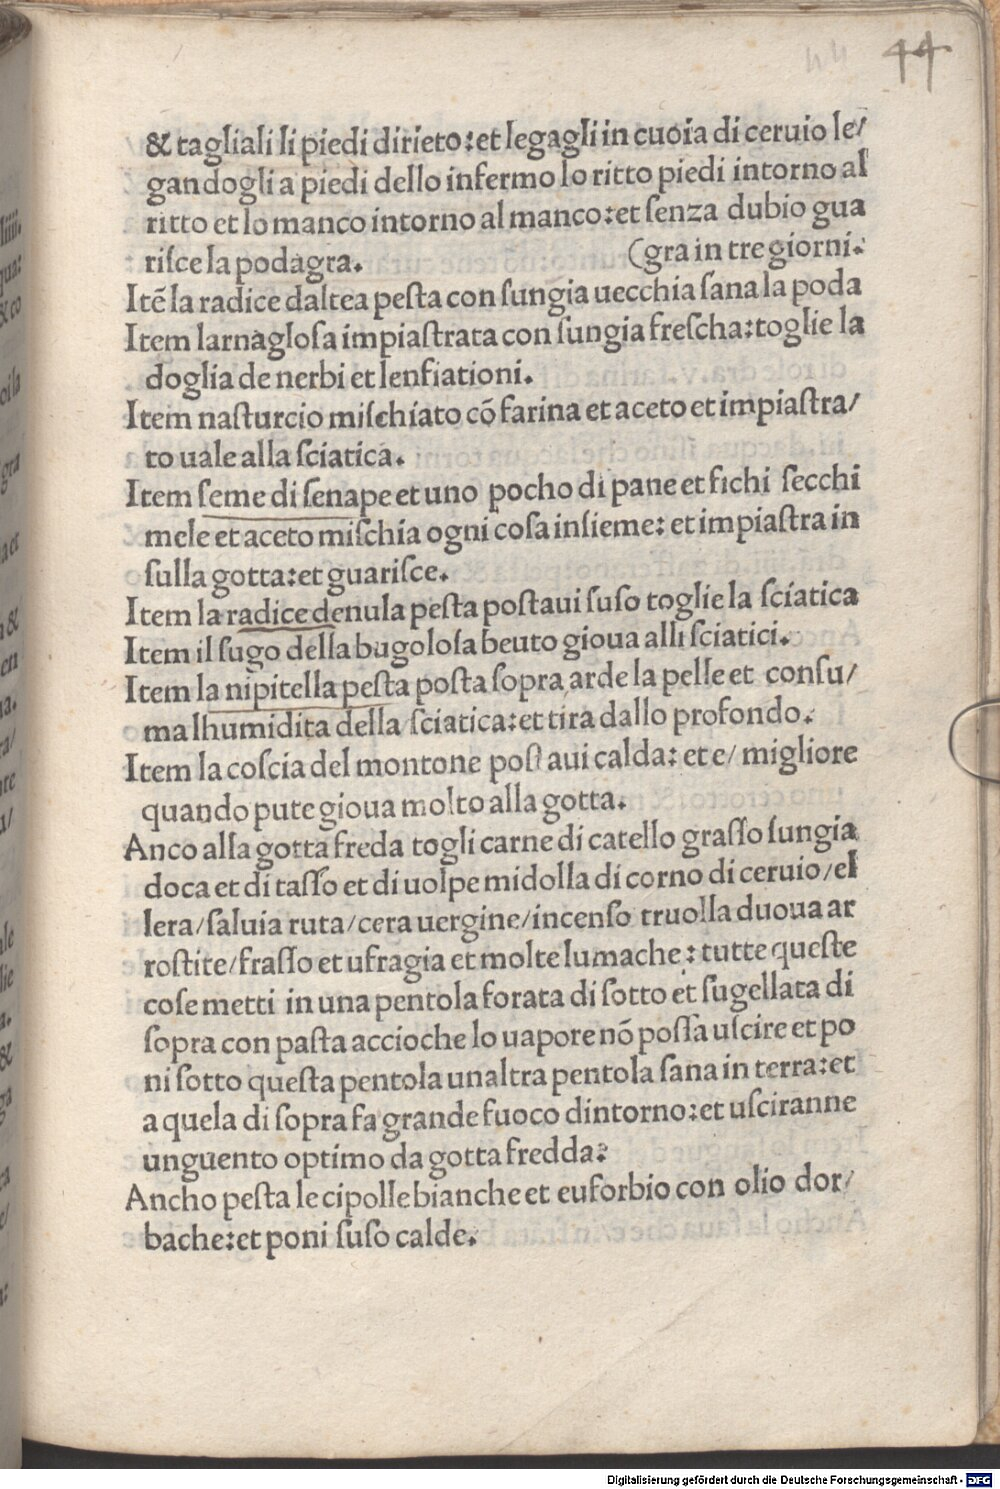 44
& tagliali li piedi dirieto:et legagli in cuoia di ceruio le/
gandogli a piedi dello infermo lo ritto piedi intorno al
ritto et lo manco intorno al manco:et ſenza dubio gua
riſce la podagra. (gra in tre giorni.
Itẽ la radice daltea peſta con ſungia uecchia ſana la poda
Item larnagloſa impiaſtrata con ſungia freſcha:toglie la
doglia de nerbi et lenfiationi.
Item naſturcio miſchiato cõ farina et aceto et impiaſtra/
to uale alla ſciatica.
Item ſeme di ſenape et uno pocho di pane et fichi ſecchi
mele et aceto miſchia ogni coſa inſieme: et impiaſtra in
ſulla gotta:et guariſce.
Item la radice denula peſta poſtaui ſuſo toglie la ſciatica
Item il ſugo della bugoloſa beuto gioua alli ſciatici.
Item la nipitella peſta poſta ſopra arde la pelle et conſu/
ma lhumidita della ſciatica:et tira dallo profondo.
Item la coſcia del montone poſt aui calda: et e/ migliore
quando pute gioua molto alla gotta.
Anco alla gotta freda togli carne di catello graſſo ſungia
doca et di taſſo et di uolpe midolla di corno di ceruio/el
lera/ſaluia ruta/cera uergine/incenſo truolla duoua ar
roſtite/fraſſo et ufragia et molte lumache: tutte queſte
coſe metti in una pentola forata di ſotto et ſugellata di
ſopra con paſta accioche lo uapore nõ poſſa uſcire et po
ni ſotto queſta pentola unaltra pentola ſana in terra:et
a quela di ſopra fa grande fuoco dintorno:et uſciranne
unguento optimo da gotta fredda:
Ancho peſta le cipolle bianche et euforbio con olio dor/
bache:et poni ſuſo calde.
Digitalisierung gefördert durch die Deutsche Forschungsgemeinschaft - DFG